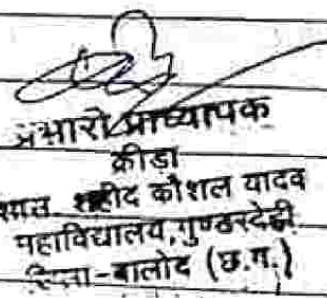 प्रभारी प्राध्यापक
क्रीड़ा
शहीद कौशल यादव
महाविद्यालय, गुण्डरदेही
जिला-बालोद (छ.ग.)